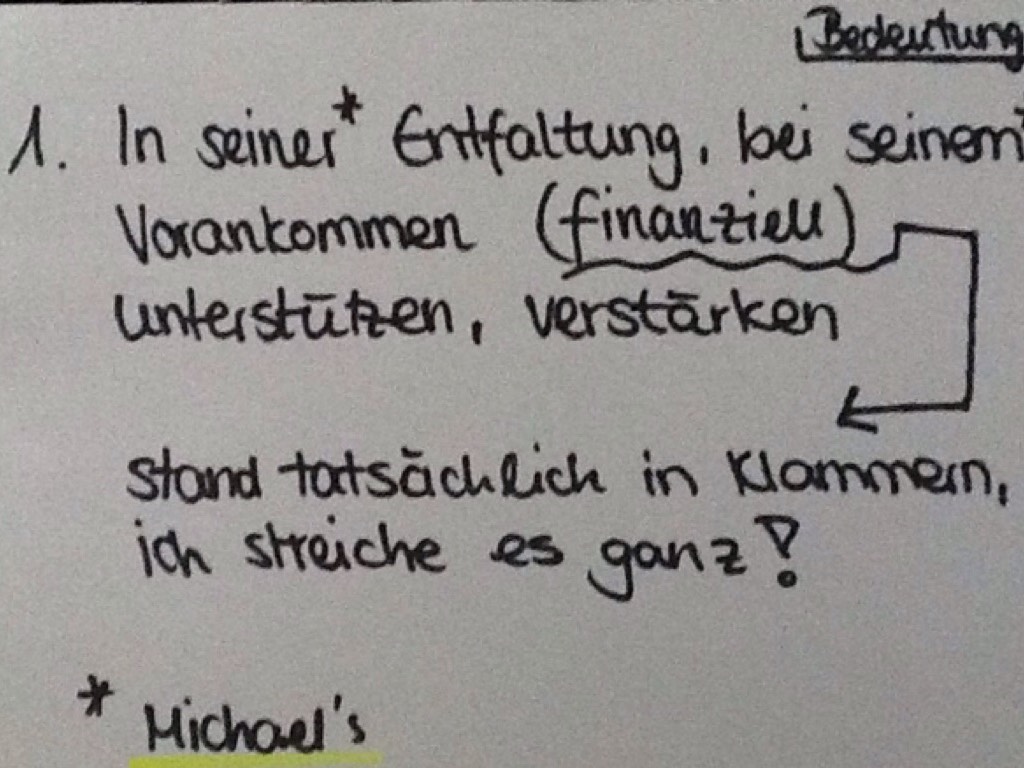 Bedeutung
1. In seiner* Entfaltung, bei seinem*
Vorankommen (finanziell)
unterstützen, verstärken
stand tatsächlich in Klammern,
ich streiche es ganz!
* Michael's